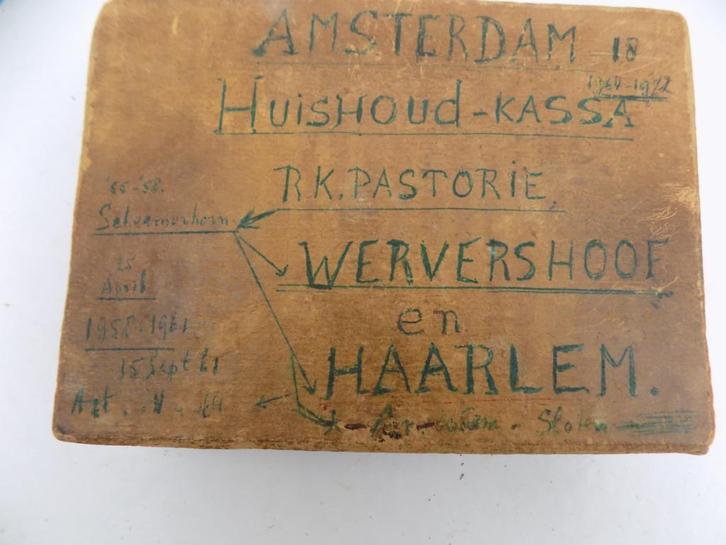 AMSTERDAM 18
1964-1972
HUISHOUD-KASSA
R.K. PASTORIE,
'55-'58.
Schermerhorn
WERVERSHOOF
25
April
en
1958-1961
HAARLEM.
15 Sept 61
Sloten